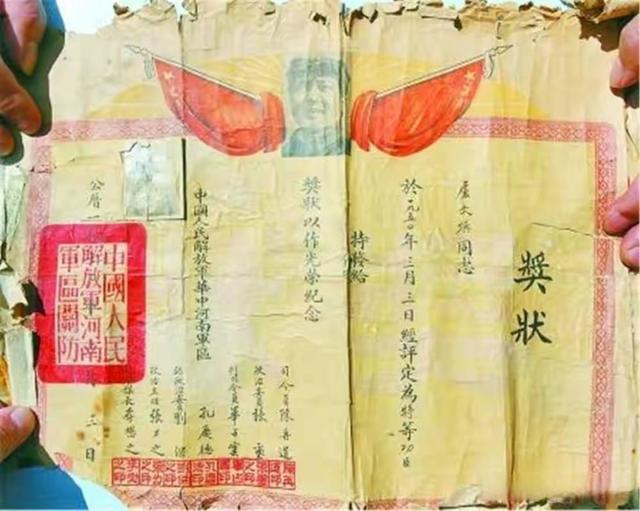 獎狀
同志
於一九五〇年三月三日經評定為特等功臣
特發給
獎狀以作光榮紀念
中國人民解放軍華中河南軍區
司令員陳再道
政治委員張璽
副司令員畢占雲
孔慶德
副政治委員劉
政治主任張力之
李懋之
公曆一
三日
中國人民
解放軍河南
軍區關防